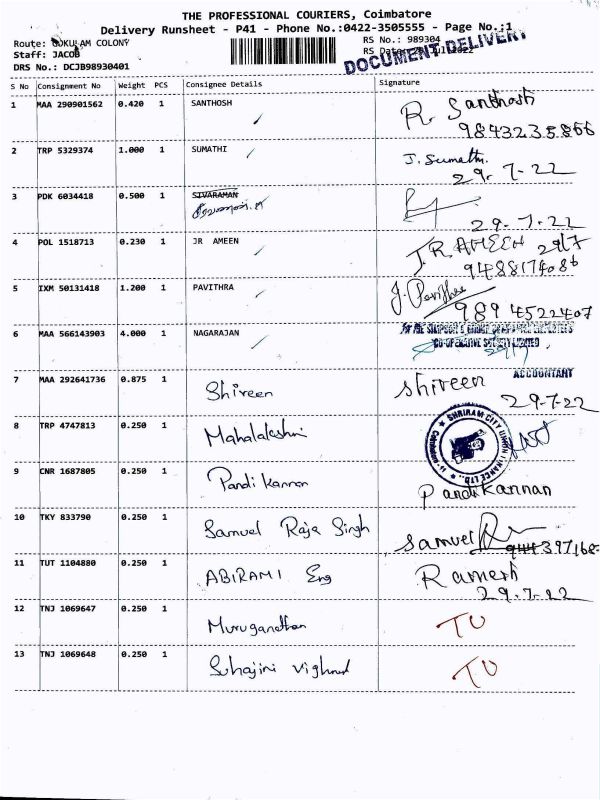 THE PROFESSIONAL COURIERS, Coimbatore
Delivery Runsheet - P41 - Phone No.:0422-3505555 - Page No.:1
Route: GOKULAM COLONY RS No.: 989304
Staff: JACOB RS Date:
DOCUMENT DELIVERY
DRS No.: DCJB98930401
S No Consignment No Weight PCS Consignee Details Signature
1 MAA 290901562 0.420 1 SANTHOSH R. Santhosh
9843235866
2 TRP 5329374 1.000 1 SUMATHI J. Sumathi
29-7-22
3 PDK 6034418 0.500 1 SIVARAMAN
29-7-22
4 POL 1518713 0.230 1 JR AMEEN J.R AMEEN 29/7
9488174086
5 IXM 50131418 1.200 1 PAVITHRA J. Pavithra
989 4522407
6 MAA 566143903 4.000 1 NAGARAJAN
CO-OPERATIVE SOCIETY LIMITED
29/7
ACCOUNTANT
7 MAA 292641736 0.875 1 Shireen shireen
29-7-22
8 TRP 4747813 0.250 1 Mahalakshmi
SHRIRAM CITY UNION FINANCE LTD.
9 CNR 1687805 0.250 1 Pandi Kannan Pandi Kannan
10 TKY 833790 0.250 1 Samuel Raja Singh Samuel
11 TUT 1104880 0.250 1 ABIRAMI Eng Ramesh
29.7.22
12 TNJ 1069647 0.250 1 Muruganathan TU
13 TNJ 1069648 0.250 1 Suhajini TU